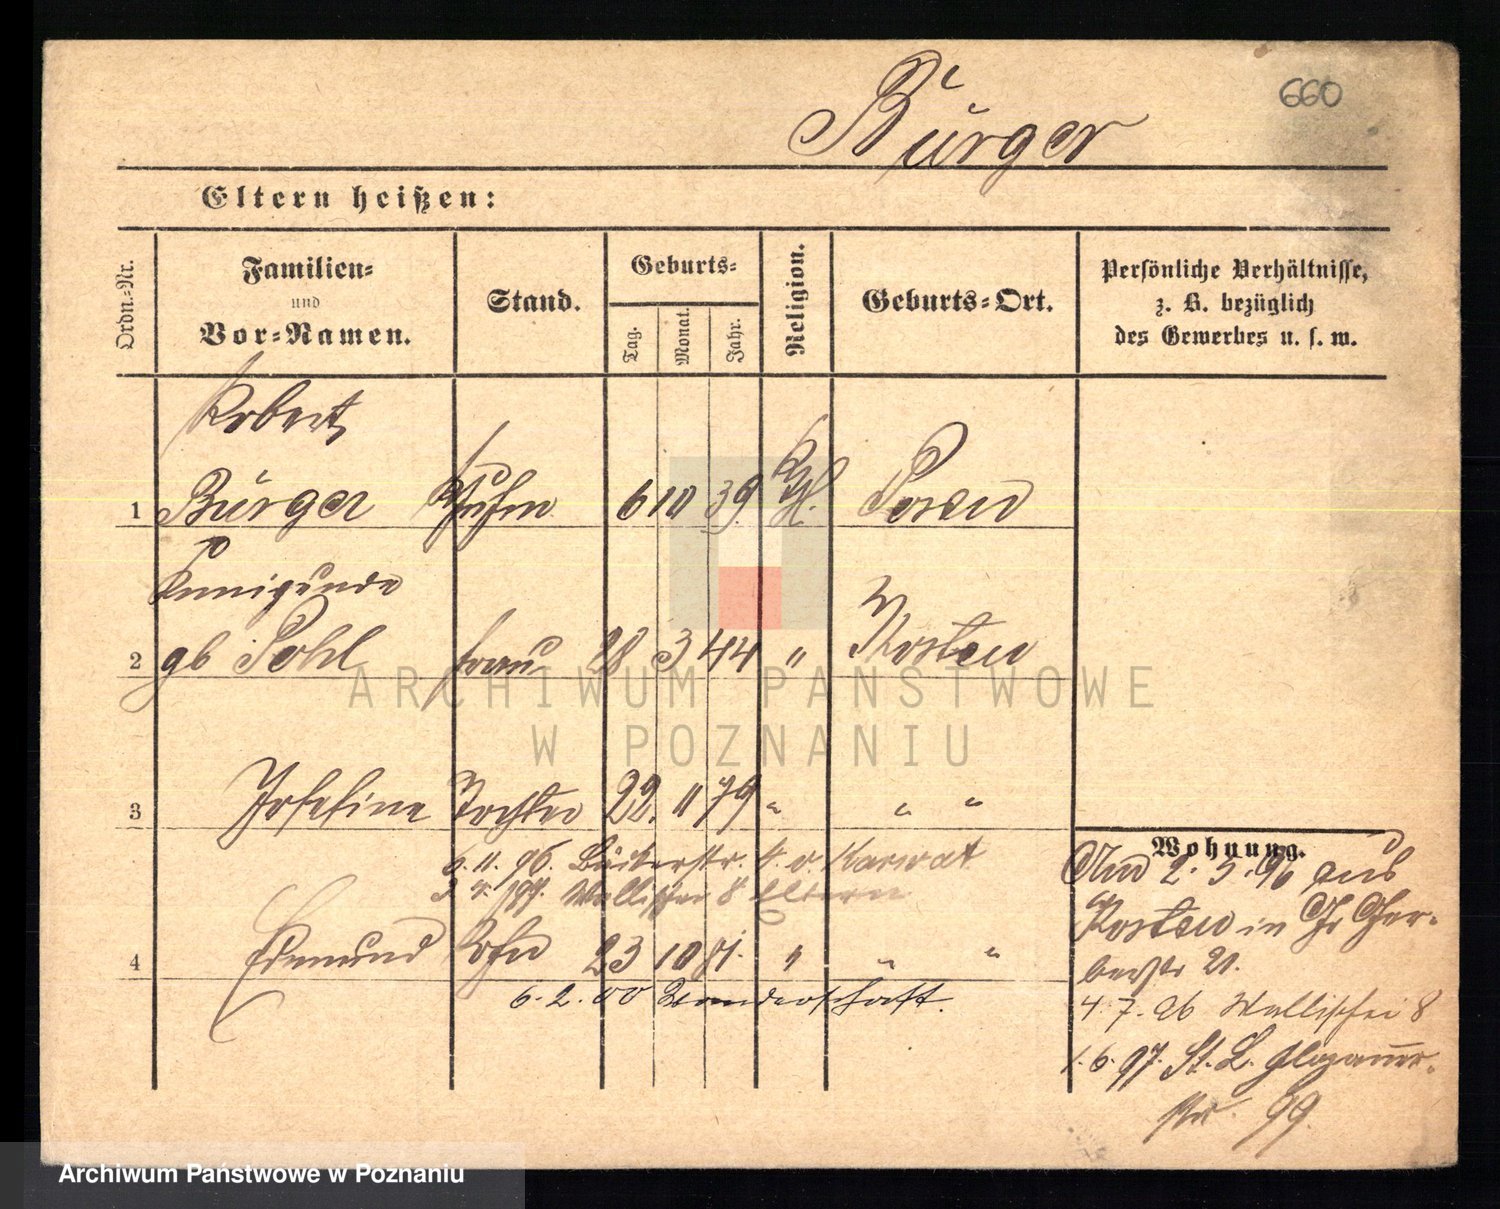 660
Bürger
Eltern heißen:
Ordn.-Nr.
Familien- und Vor-Namen.
Stand.
Geburts-
Tag.
Monat.
Jahr.
Religion.
Geburts-Ort.
Persönliche Verhältnisse, z. B. bezüglich des Gewerbes u. s. w.
Robert
1 Bürger 6 10 39 Posen
Kunigunde
2 gb Pohl Frau 28 3 44 " Kosten
3 Josefine Tochter 22. 11 79 " " "
6. 11. 96. Bäckerstr. b. Karwat
Wallischei 8 Eltern
4 Edmund Sohn 23 10 81. " " "
6. 2. 00 Wanderschaft.
Wohnung.
2. 3. 96 aus
Kosten in Gr Ger-
berstr 21.
4. 7. 96 Wallischei 8
1. 6. 97. St. L. Glogauer-
str. 99.
ARCHIWUM PAŃSTWOWE
W POZNANIU
Archiwum Państwowe w Poznaniu